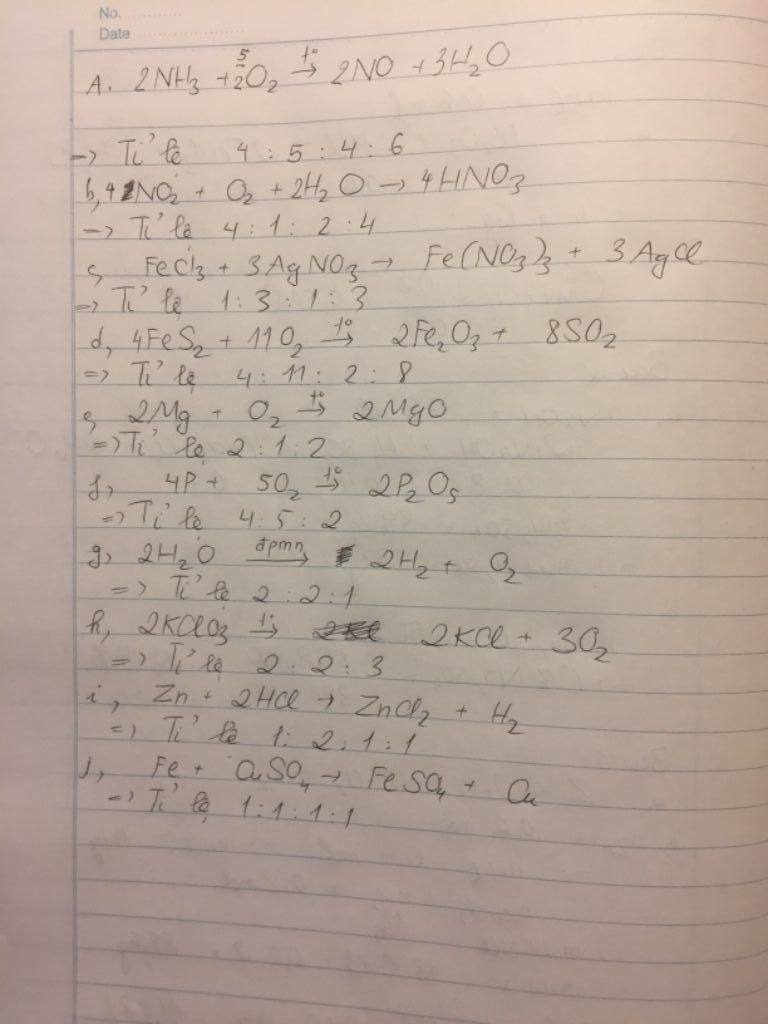 No.
Date
A. 2NH₃ + 5/2O₂ t°→ 2NO + 3H₂O
=> Tỉ lệ 4 : 5 : 4 : 6
b, 4NO₂ + O₂ + 2H₂O → 4HNO₃
=> Tỉ lệ 4 : 1 : 2 : 4
c, FeCl₃ + 3AgNO₃ → Fe(NO₃)₃ + 3AgCl
=> Tỉ lệ 1 : 3 : 1 : 3
d, 4FeS₂ + 11O₂ t°→ 2Fe₂O₃ + 8SO₂
=> Tỉ lệ 4 : 11 : 2 : 8
e, 2Mg + O₂ t°→ 2MgO
=> Tỉ lệ 2 : 1 : 2
f, 4P + 5O₂ t°→ 2P₂O₅
=> Tỉ lệ 4 : 5 : 2
g, 2H₂O đpmn→ 2H₂ + O₂
=> Tỉ lệ 2 : 2 : 1
h, 2KClO₃ t°→ 2KCl + 3O₂
=> Tỉ lệ 2 : 2 : 3
i, Zn + 2HCl → ZnCl₂ + H₂
=> Tỉ lệ 1 : 2 : 1 : 1
j, Fe + CuSO₄ → FeSO₄ + Cu
=> Tỉ lệ 1 : 1 : 1 : 1